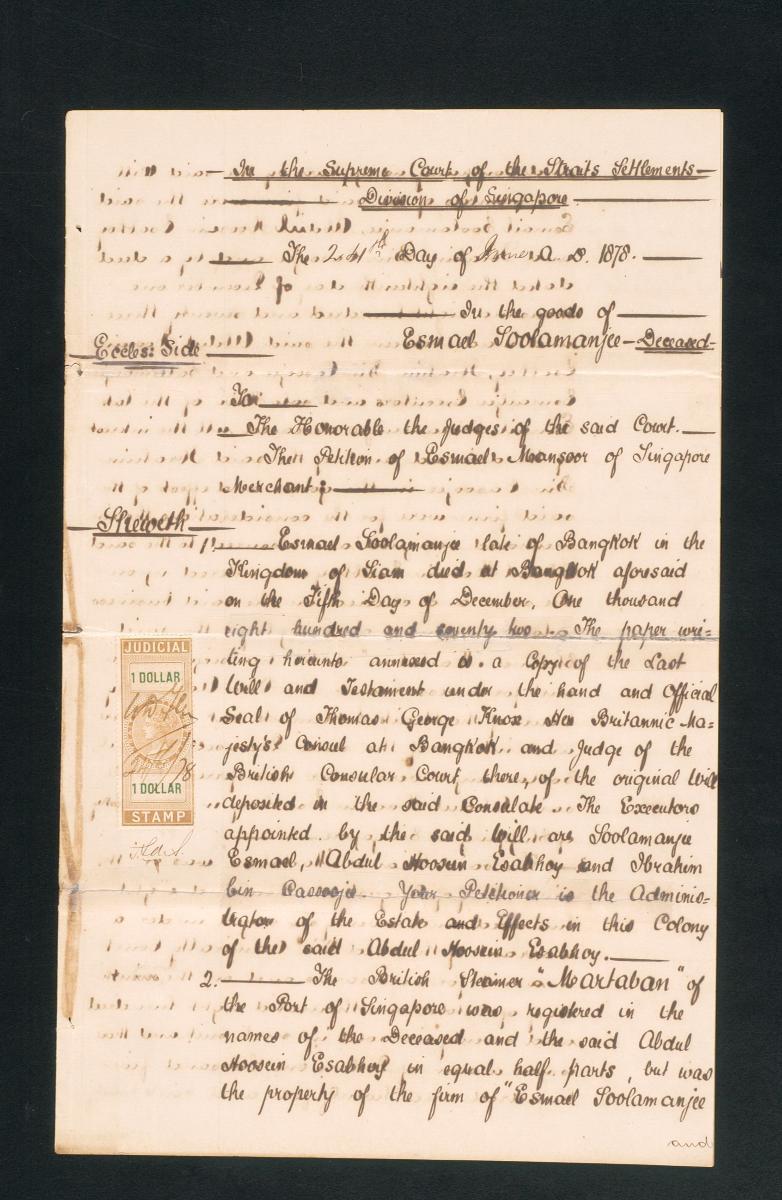 In the Supreme Court of the Straits Settlements
Division of Singapore
The 24th Day of June A. D. 1878.
In the goods of
Esmael Soolamanjee - Deceased -
Eccles: Side
To
The Honorable the Judges of the said Court.
The Petition of Esmael Mansoor of Singapore
Merchant;
Sheweth
1. Esmael Soolamanjee late of Bangkok in the
Kingdom of Siam died at Bangkok aforesaid
on the Fifth Day of December, One thousand
eight hundred and seventy two. The paper wri=
ting hereunto annexed is a Copy of the Last
Will and Testament under the hand and Official
Seal of Thomas George Knox Her Britannic Ma=
jesty's Consul at Bangkok and Judge of the
British Consular Court there, of the original Will
deposited in the said Consulate. The Executors
appointed by the said Will are Soolamanjee
Esmael, Abdul Hoosein Esabhoy and Ibrahim
bin . Your Petitioner is the Adminis=
trator of the Estate and Effects in this Colony
of the said Abdul Hoosein Esabhoy.
2. The British Steamer "Martaban" of
the Port of Singapore was registered in the
names of the Deceased and the said Abdul
Hoosein Esabhoy in equal half parts, but was
the property of the firm of "Esmael Soolamanjee
and
JUDICIAL
1 DOLLAR
24 78
1 DOLLAR
STAMP